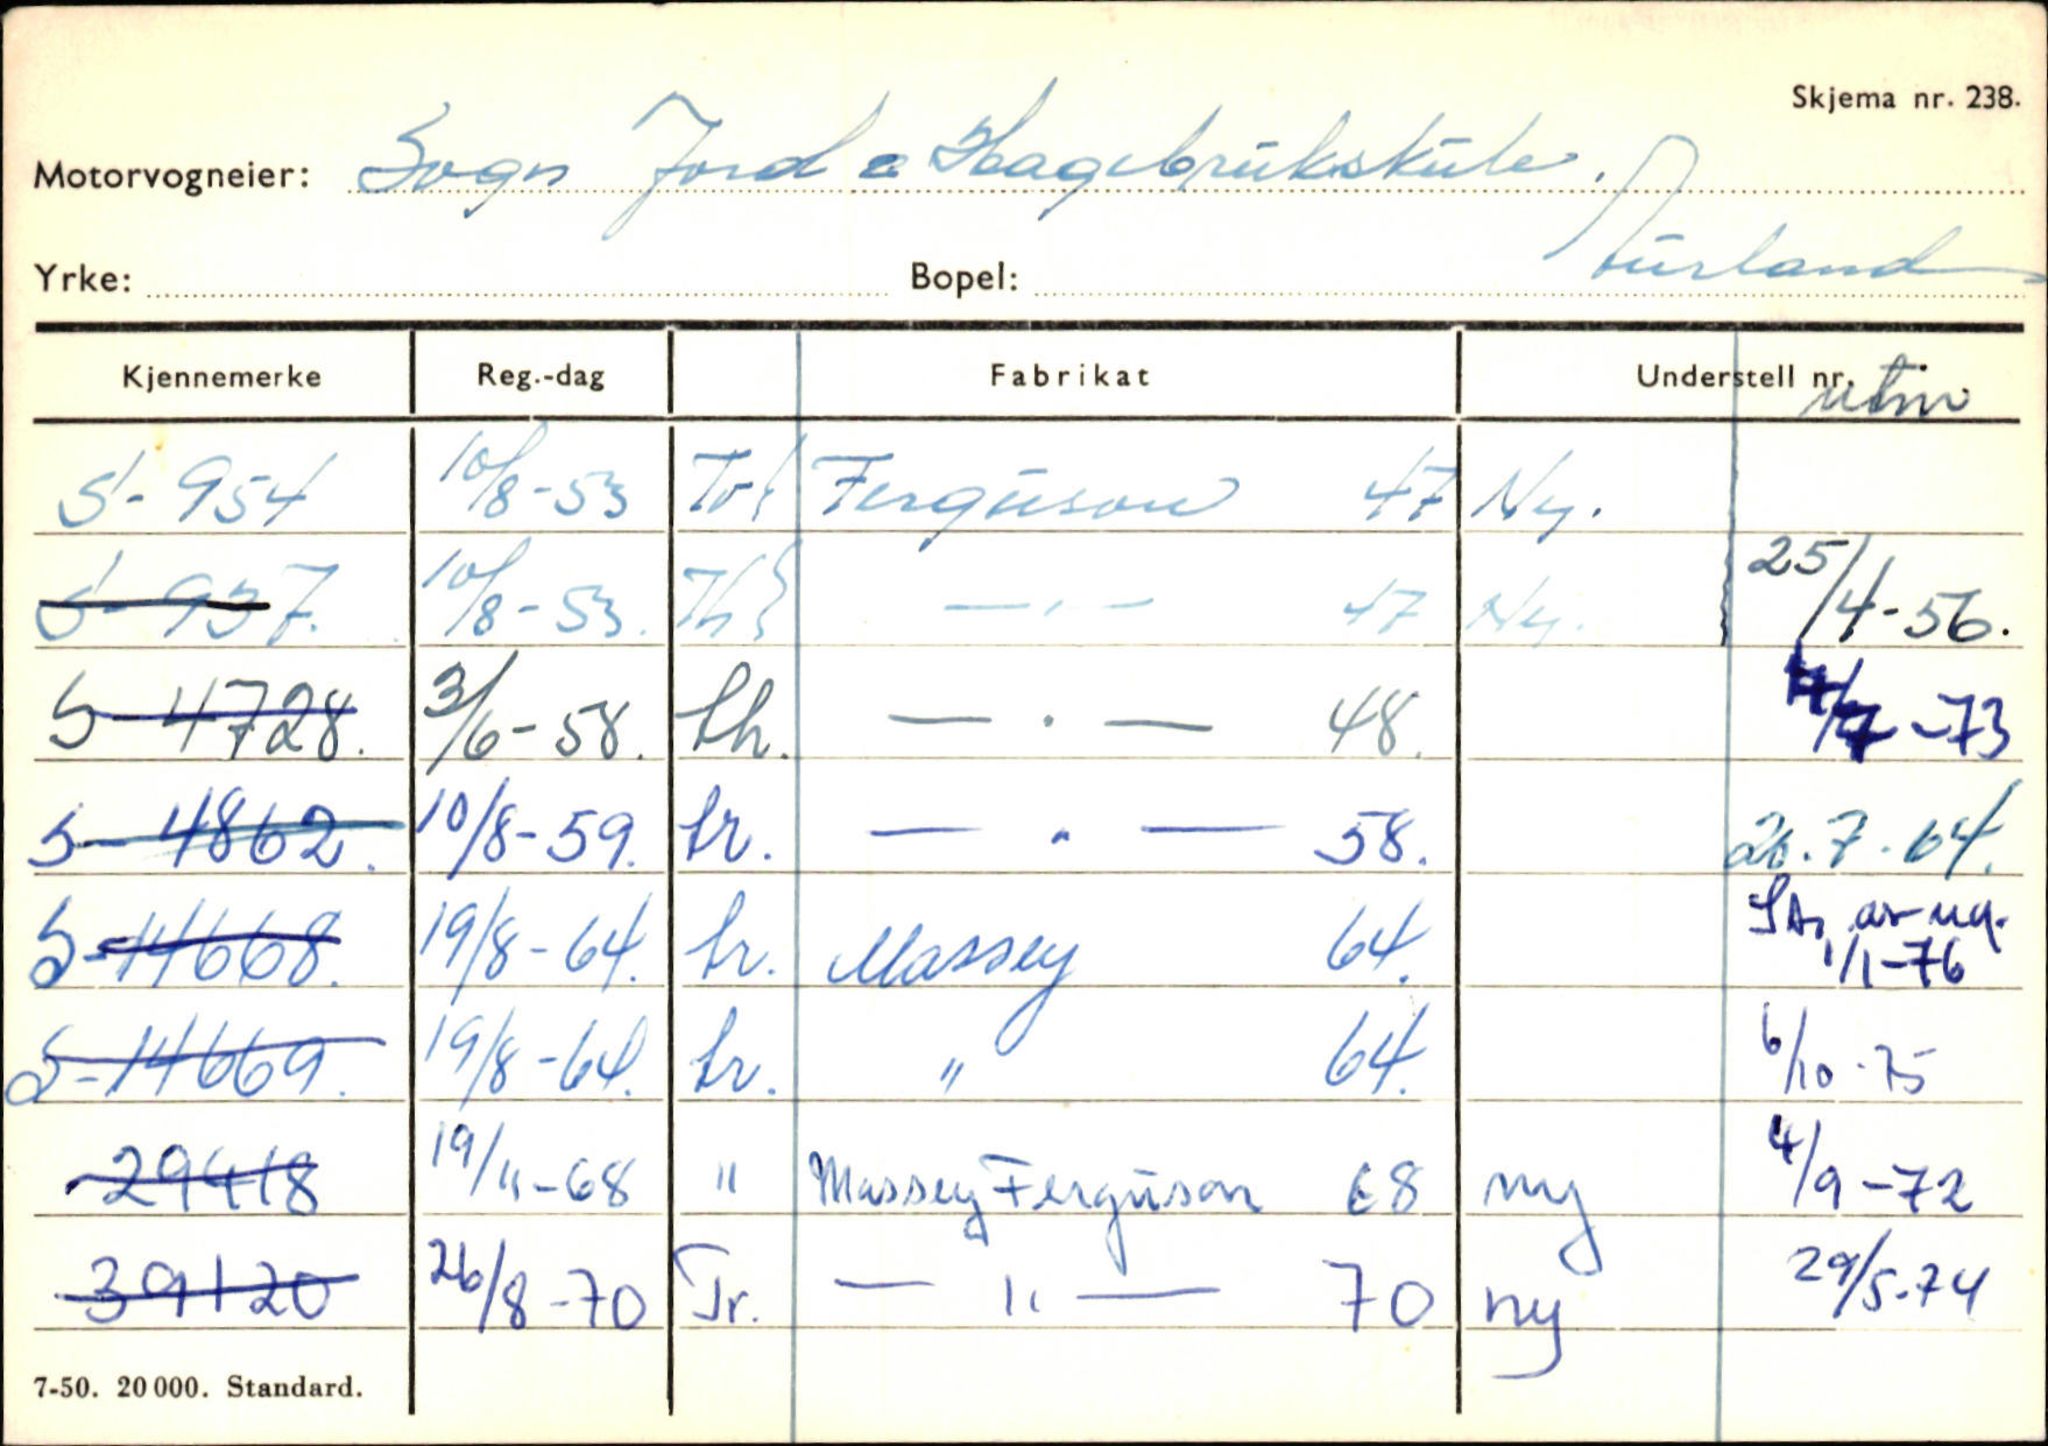 Skjema nr. 238.
Motorvogneier: Sogn Jord & Hagebrukskule.
Yrke: Bopel: Aurland
Kjennemerke Reg.-dag Fabrikat Understell nr.
S-954 10/8-53 Ferguson 47 Ny.
S-937. 10/8-53. —„— 47 Ny. 25/4-56.
S-4728. 3/6-58. Lh. — . — 48. /7-73
S-4862. 10/8-59. Lr. — " — 58. 7.64.
S-14668. 19/8-64. Lr. Massey 64. 1/1-76
S-14669. 19/8-64. Lr. " 64. 6/10-75
29418 19/11-68 " Massey Ferguson 68 ny 4/9-72
39120 26/8-70 Tr. — " — 70 ny 29/5-74
7-50. 20 000. Standard.